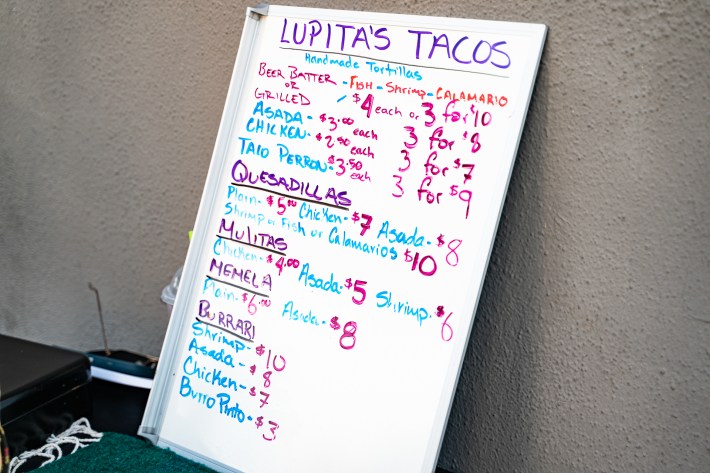 LUPITA'S TACOS
Handmade Tortillas
BEER BATTER OR GRILLED - FISH - Shrimp - CALAMARIO
$4 each or 3 for $10
ASADA - $3.00 each 3 for $8
CHICKEN - $2.50 each 3 for $7
TAIO PERRON - $3.50 each 3 for $9
QUESADILLAS
Plain - $5.00 Chicken - $7 Asada - $8
Shrimp or Fish or Calamarios $10
MULITAS
Chicken - $4.00 Asada - $5 Shrimp - $6
MEMELA
Plain - $6.00 Asada - $8
BURRARI
Shrimp - $10
Asada - $8
Chicken - $7
Burro Pinto - $3